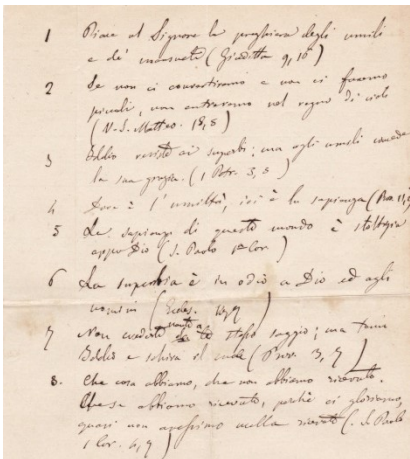 1 Piace al Signore la preghiera degli umili
e de' mansueti (Giuditta 9, 16)
2 Se non ci convertiremo e non ci faremo
piccoli, non entreremo nel regno di cieli
(N. S. Matteo. 18, 3)
3 Iddio resiste ai superbi; ma agli umili concede
la sua grazia. (1 Petr. 5, 5)
4 Dove è l'umiltà, ivi è la sapienza (Pro. 11,
5 La sapienza di questo mondo è stoltezza
appo Dio (S. Paolo 1ª Cor.)
6 La superbia è in odio a Dio ed agli
uomini (Eccles. 10, 7)
7 Non crederti stesso saggio; ma temi
Iddio e schiva il male (Prov. 3, 7)
8. Che cosa abbiamo, che non abbiamo ricevuto.
Che se abbiamo ricevuto, perchè ci gloriamo,
quasi non avessimo nulla ricevuto (S. Paolo
1 Cor. 4, 7)